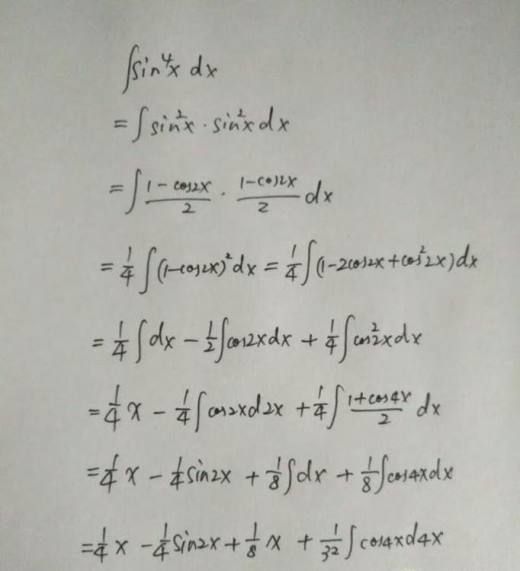 ∫sin⁴x dx
=∫sin²x·sin²x dx
=∫(1-cos2x)/2 · (1-cos2x)/2 dx
=1/4∫(1-cos2x)²dx=1/4∫(1-2cos2x+cos²2x)dx
=1/4∫dx-1/2∫cos2xdx+1/4∫cos²2xdx
=1/4x-1/4∫cos2xd2x+1/4∫(1+cos4x)/2 dx
=1/4x-1/4sin2x+1/8∫dx+1/8∫cos4xdx
=1/4x-1/4sin2x+1/8x+1/32∫cos4xd4x